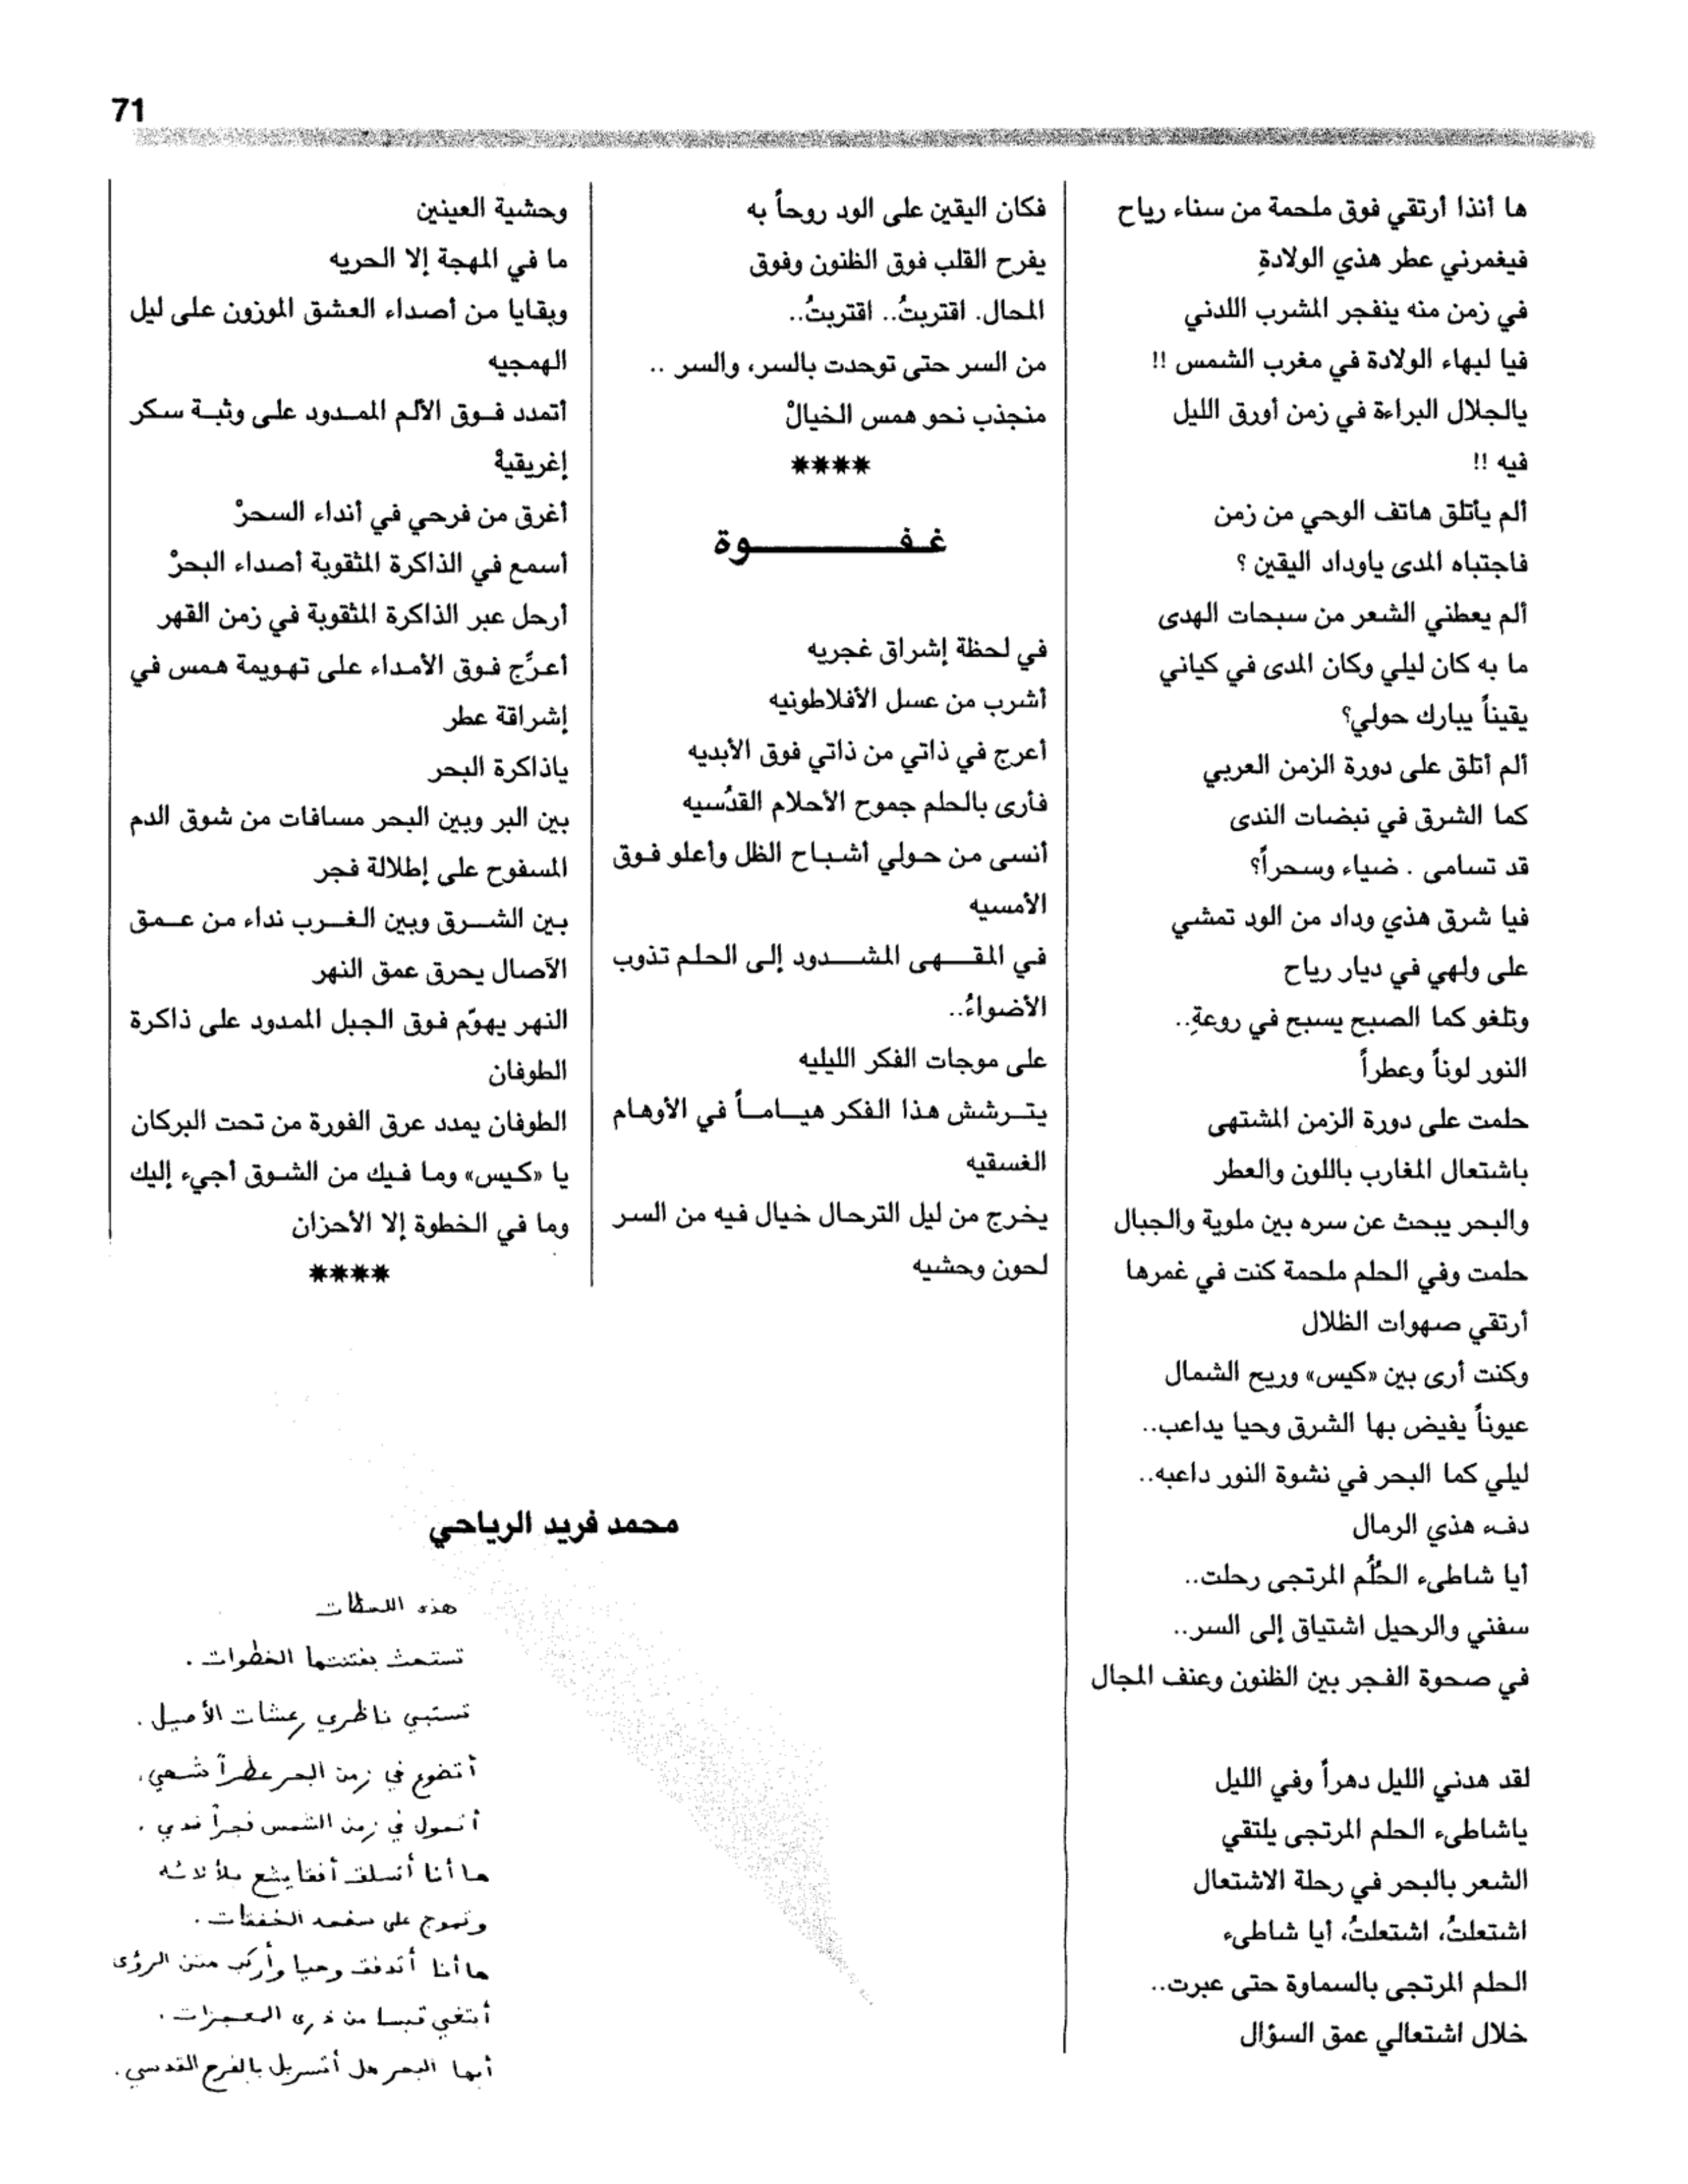 71
ها أنذا أرتقي فوق ملحمة من سناء رياح
فيغمرني عطر هذي الولادةِ
في زمن منه ينفجر المشرب اللدني
فيا لبهاء الولادة في مغرب الشمس !!
يالجلال البراءة في زمن أورق الليل
فيه !!
ألم يأتلق هاتف الوحي من زمن
فاجتباه المدى ياوداد اليقين ؟
ألم يعطني الشعر من سبحات الهدى
ما به كان ليلي وكان المدى في كياني
يقيناً يبارك حولي؟
ألم أتلق على دورة الزمن العربي
كما الشرق في نبضات الندى
قد تسامى . ضياء وسحراً؟
فيا شرق هذي وداد من الود تمشي
على ولهي في ديار رياح
وتلغو كما الصبح يسبح في روعةِ..
النور لوناً وعطراً
حلمت على دورة الزمن المشتهى
باشتعال المغارب باللون والعطر
والبحر يبحث عن سره بين ملوية والجبال
حلمت وفي الحلم ملحمة كنت في غمرها
أرتقي صهوات الظلال
وكنت أرى بين «كيس» وريح الشمال
عيوناً يفيض بها الشرق وحيا يداعب..
ليلي كما البحر في نشوة النور داعبه..
دفء هذي الرمال
أيا شاطىء الحُلُم المرتجى رحلت..
سفني والرحيل اشتياق إلى السر..
في صحوة الفجر بين الظنون وعنف المجال
لقد هدني الليل دهراً وفي الليل
ياشاطىء الحلم المرتجى يلتقي
الشعر بالبحر في رحلة الاشتعال
اشتعلتُ، اشتعلتُ، أيا شاطىء
الحلم المرتجى بالسماوة حتى عبرت..
خلال اشتعالي عمق السؤال
فكان اليقين على الود روحاً به
يفرح القلب فوق الظنون وفوق
المحال. اقتربتُ.. اقتربتُ..
من السر حتى توحدت بالسر، والسر ..
منجذب نحو همس الخيالْ
****
غـفـــــــــوة
في لحظة إشراق غجريه
أشرب من عسل الأفلاطونيه
أعرج في ذاتي من ذاتي فوق الأبديه
فأرى بالحلم جموح الأحلام القدُسيه
أنسى من حولي أشباح الظل وأعلو فوق
الأمسيه
في المقـــهى المشـــدود إلى الحلم تذوب
الأضواءُ..
على موجات الفكر الليليه
يتـرشش هذا الفكر هيـامـاً في الأوهام
الغسقيه
يخرج من ليل الترحال خيال فيه من السر
لحون وحشيه
وحشية العينين
ما في المهجة إلا الحريه
وبقايا من أصداء العشق الموزون على ليل
الهمجيه
أتمدد فـوق الألم الممـدود على وثبـة سكر
إغريقيهْ
أغرق من فرحي في أنداء السحرْ
أسمع في الذاكرة المثقوبة أصداء البحرْ
أرحل عبر الذاكرة المثقوبة في زمن القهر
أعرِّج فوق الأمداء على تهويمة همس في
إشراقة عطر
ياذاكرة البحر
بين البر وبين البحر مسافات من شوق الدم
المسفوح على إطلالة فجر
بين الشـــرق وبين الغـــرب نداء من عـــمق
الآصال يحرق عمق النهر
النهر يهوّم فوق الجبل الممدود على ذاكرة
الطوفان
الطوفان يمدد عرق الفورة من تحت البركان
يا «كيس» وما فيك من الشوق أجيء إليك
وما في الخطوة إلا الأحزان
****
محمد فريد الرياحي
هذه اللحظات
تستحث بفتنتها الخطوات .
تستبي ناظري رعشات الأصيل .
أتضوع في زمن البحر عطراً شهي .
أتحول في زمن الشمس فجراً ندي .
ها أنا أتسلق أفقا يشع بلألائه
وتموج على سفحه الخفقات .
ها أنا أتدفق وحيا وأركب متن الرؤى
أبتغي قبسا من ذرى المعجزات .
أيها البحر هل أتسربل بالفرح القدسي .